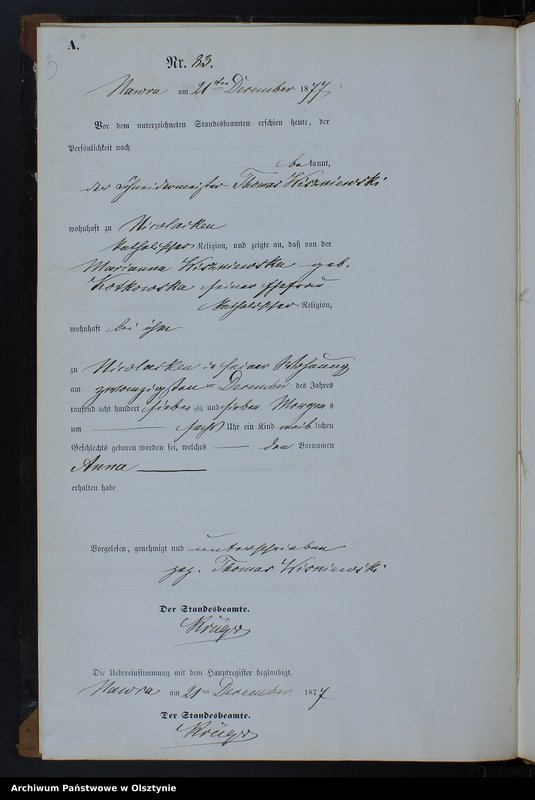 A.
3
Nr. 83.
Nawra am 21ten December 1877
Vor dem unterzeichneten Standesbeamten erschien heute, der
Persönlichkeit nach
bekannt,
der Schneidermeister Thomas Wiszniewski
wohnhaft zu Nicolaiken
katholischer Religion, und zeigte an, daß von der
Marianna Wiszniewska geb.
Kotkowska seiner Ehefrau
katholischer Religion,
wohnhaft bei ihm
zu Nicolaiken in seiner Wohnung
am zwanzigsten December des Jahres
tausend acht hundert siebenzig und sieben Morgens
um sechs Uhr ein Kind weiblichen
Geschlechts geboren worden sei, welches den Vornamen
Anna
erhalten habe
Vorgelesen, genehmigt und unterschrieben
gez. Thomas Wisniewski
Der Standesbeamte.
Krüger
Die Uebereinstimmung mit dem Hauptregister beglaubigt.
Nawra am 21ten December 1877
Der Standesbeamte.
Krüger
Archiwum Państwowe w Olsztynie